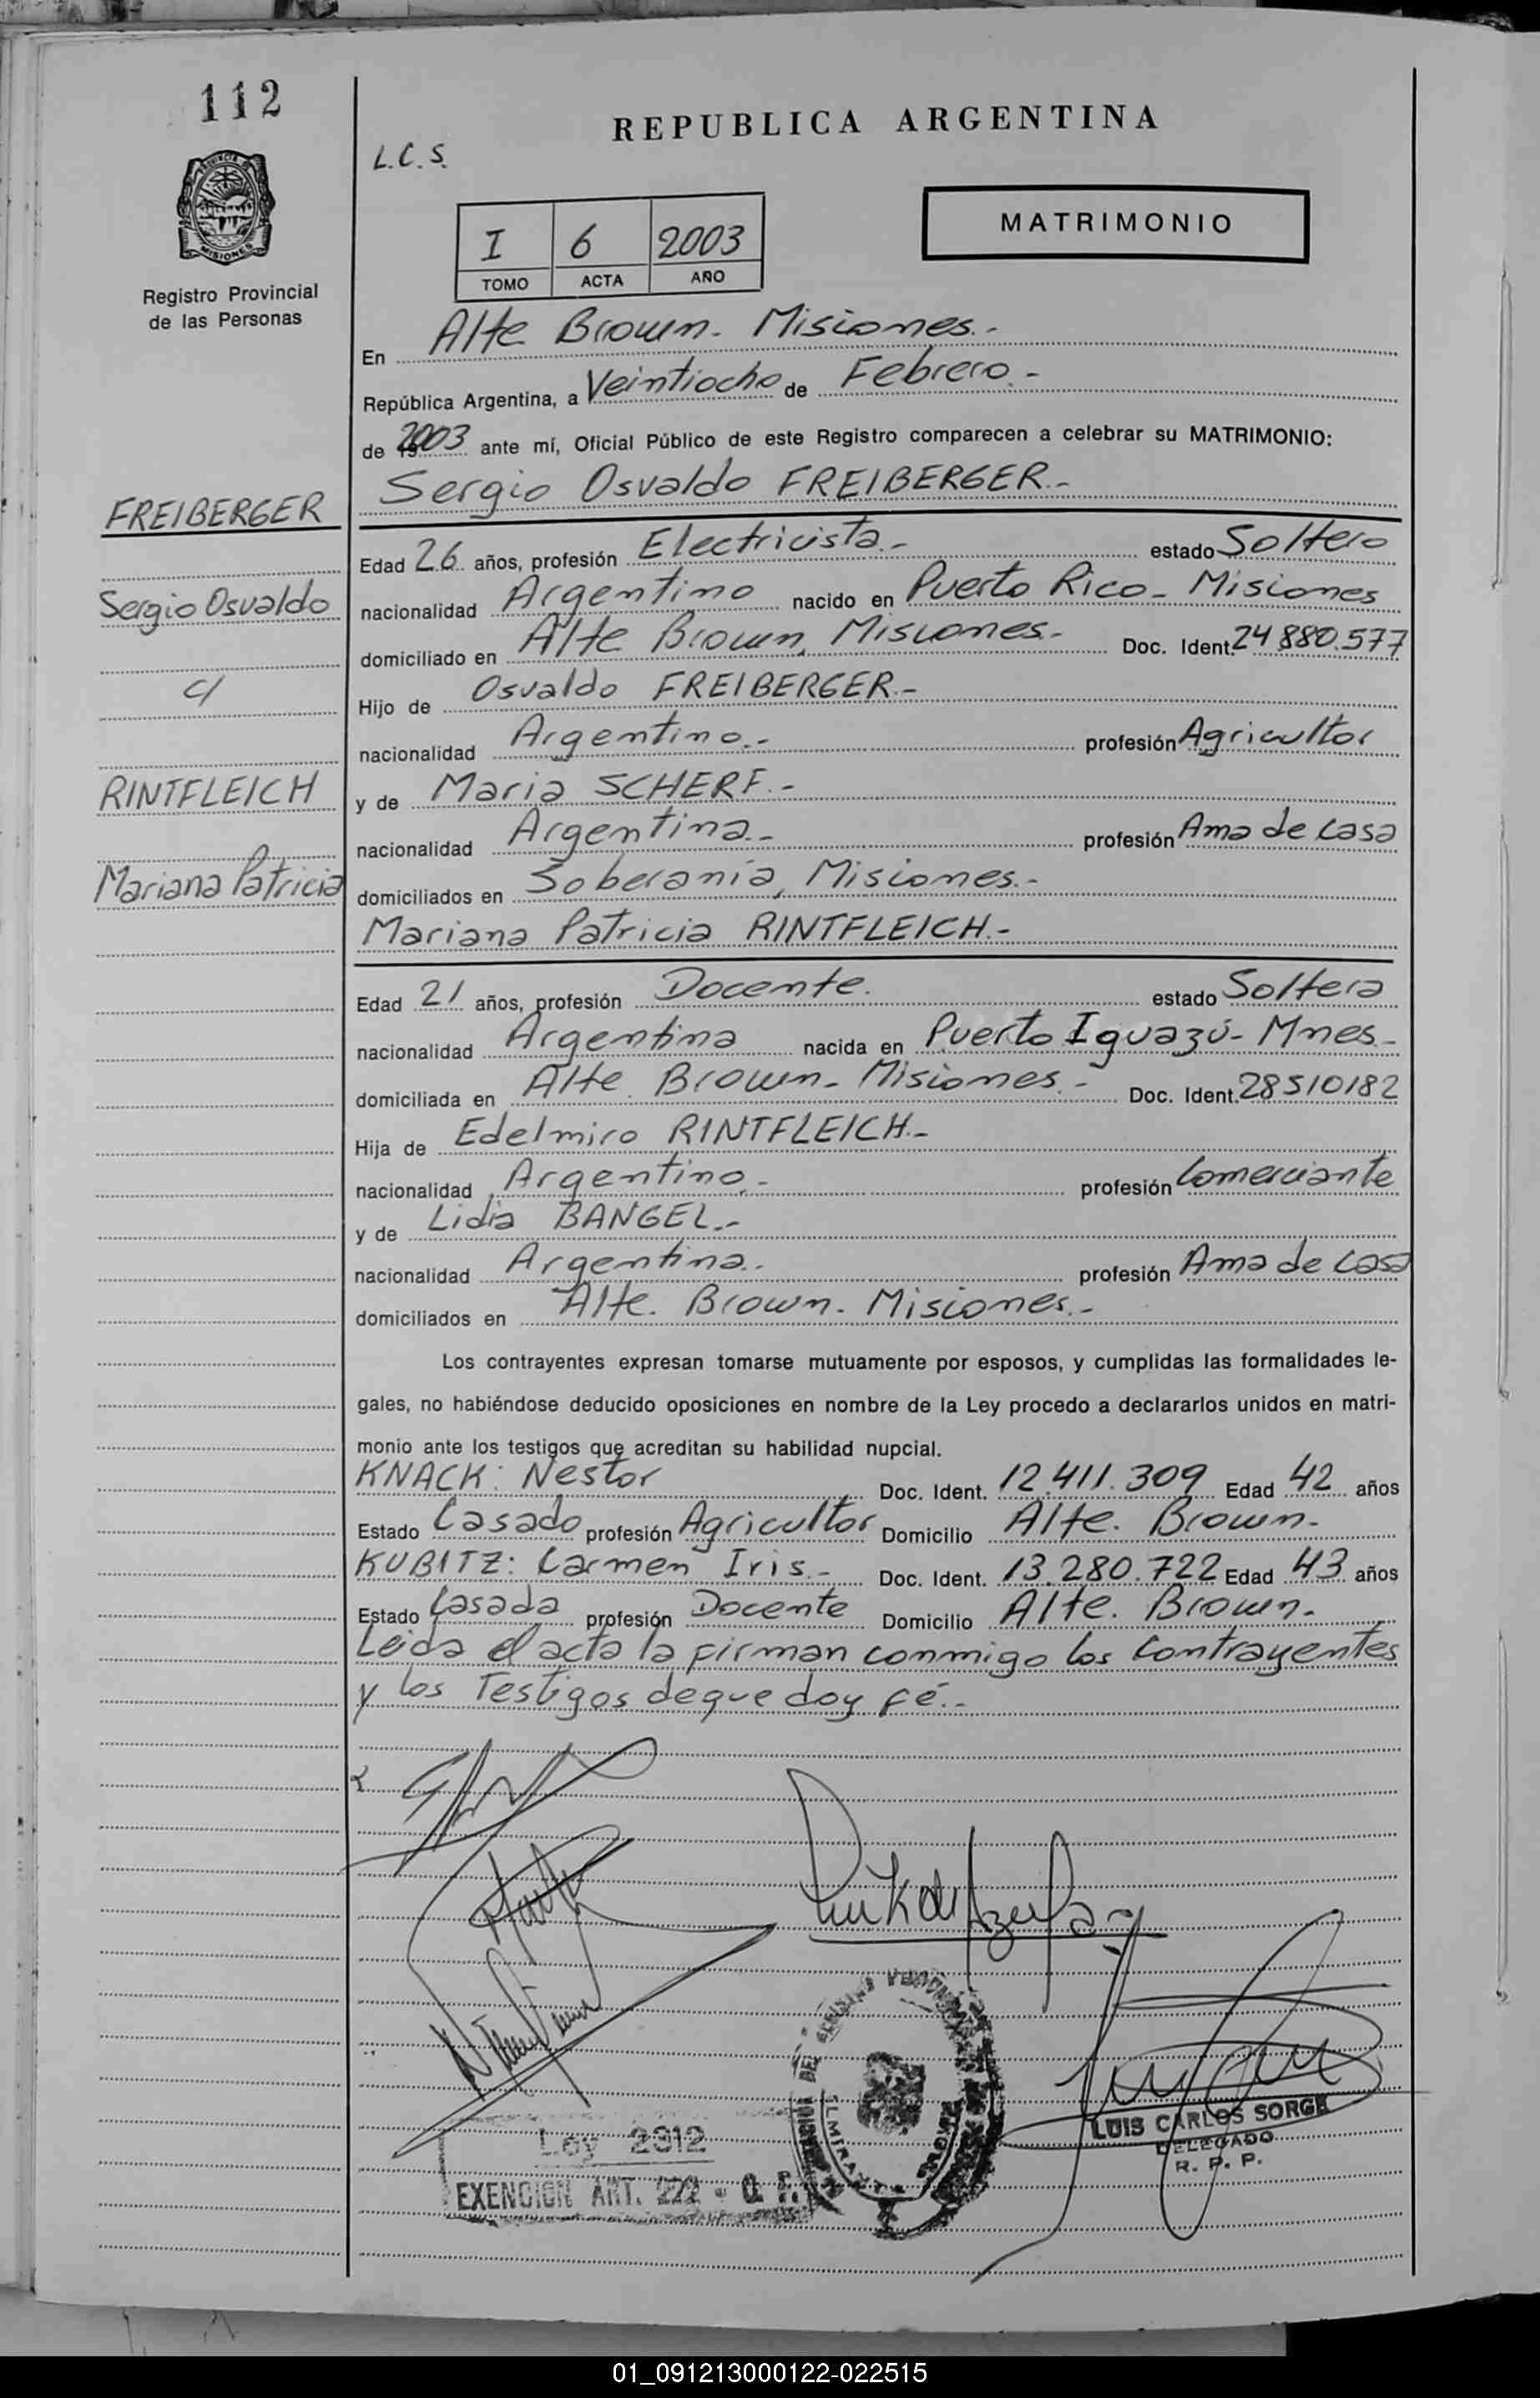 112
REPUBLICA ARGENTINA
L.C.S.
MISIONES
Registro Provincial
de las Personas
I 6 2003
TOMO ACTA AÑO
MATRIMONIO
En Alte Brown. Misiones.-
República Argentina, a Veintiocho de Febrero.-
de 2003 ante mí, Oficial Público de este Registro comparecen a celebrar su MATRIMONIO:
FREIBERGER
Sergio Osvaldo FREIBERGER.-
Edad 26 años, profesión Electricista.- estado Soltero
Sergio Osvaldo
nacionalidad Argentino nacido en Puerto Rico - Misiones
domiciliado en Alte Brown, Misiones.- Doc. Ident. 24.880.577
c/
Hijo de Osvaldo FREIBERGER.-
nacionalidad Argentino.- profesión Agricultor
RINTFLEICH
y de Maria SCHERF.-
nacionalidad Argentina.- profesión Ama de casa
Mariana Patricia
domiciliados en Soberanía, Misiones.-
Mariana Patricia RINTFLEICH.-
Edad 21 años, profesión Docente. estado Soltera
nacionalidad Argentina nacida en Puerto Iguazú - Mnes.-
domiciliada en Alte. Brown - Misiones.- Doc. Ident. 28510182
Hija de Edelmiro RINTFLEICH.-
nacionalidad Argentino.- profesión Comerciante
y de Lidia BANGEL.-
nacionalidad Argentina.. profesión Ama de Casa
domiciliados en Alte. Brown. Misiones.-
Los contrayentes expresan tomarse mutuamente por esposos, y cumplidas las formalidades le-
gales, no habiéndose deducido oposiciones en nombre de la Ley procedo a declararlos unidos en matri-
monio ante los testigos que acreditan su habilidad nupcial.
KNACK: Nestor Doc. Ident. 12.411.309 Edad 42 años
Estado Casado profesión Agricultor Domicilio Alte. Brown.
KUBITZ: Carmen Iris.- Doc. Ident. 13.280.722 Edad 43 años
Estado Casada profesión Docente Domicilio Alte. Brown.
Leida el acta la firman conmigo los Contrayentes
y los Testigos de que doy fé.-
LUIS CARLOS SORGE
DELEGADO
R. P. P.
Ley 2312
EXENCION ART. 222 - C. F.
01_091213000122-022515